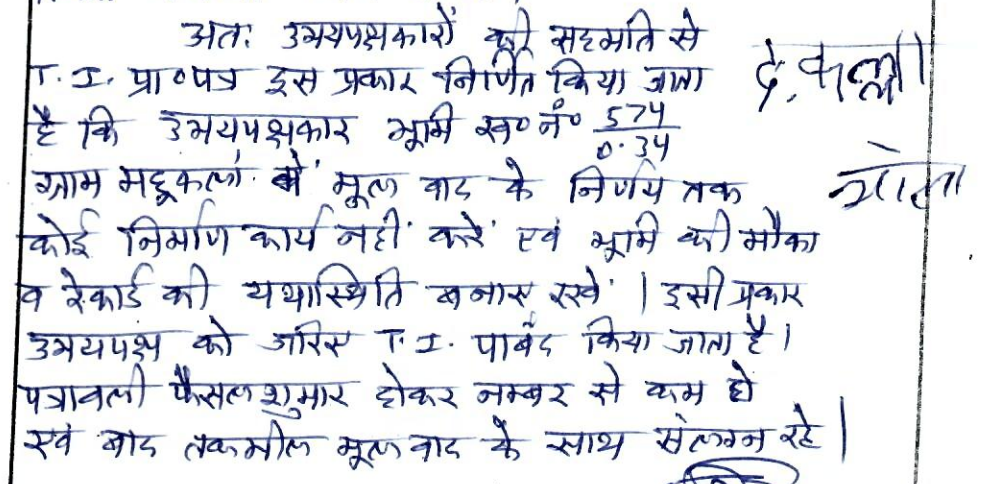 अतः उभयपक्षकारों की सहमति से
T.I. प्रा०पत्र इस प्रकार निर्णित किया जाता
है कि उभयपक्षकार भूमि ख०नं० 574/0.34
ग्राम महूकलां में मूल वाद के निर्णय तक
कोई निर्माण कार्य नहीं करें एवं भूमि की मौका
व रेकार्ड की यथास्थिति बनाए रखें । इसी प्रकार
उभयपक्ष को जरिए T.I. पाबंद किया जाता है।
पत्रावली फैसल शुमार होकर नम्बर से कम हो
एवं बाद तकमील मूल वाद के साथ संलग्न रहे।